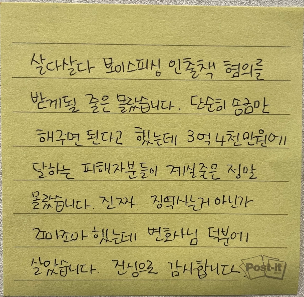 살다살다 보이스피싱 인출책 혐의를
받게될 줄은 몰랐습니다. 단순히 송금만
해주면 된다고 했는데 3억 4천만원에
달하는 피해자분들이 계실줄은 정말
몰랐습니다. 진짜 징역사는거 아닌가
했는데 변호사님 덕분에
살았습니다. 진심으로 감사합니다
Post-it